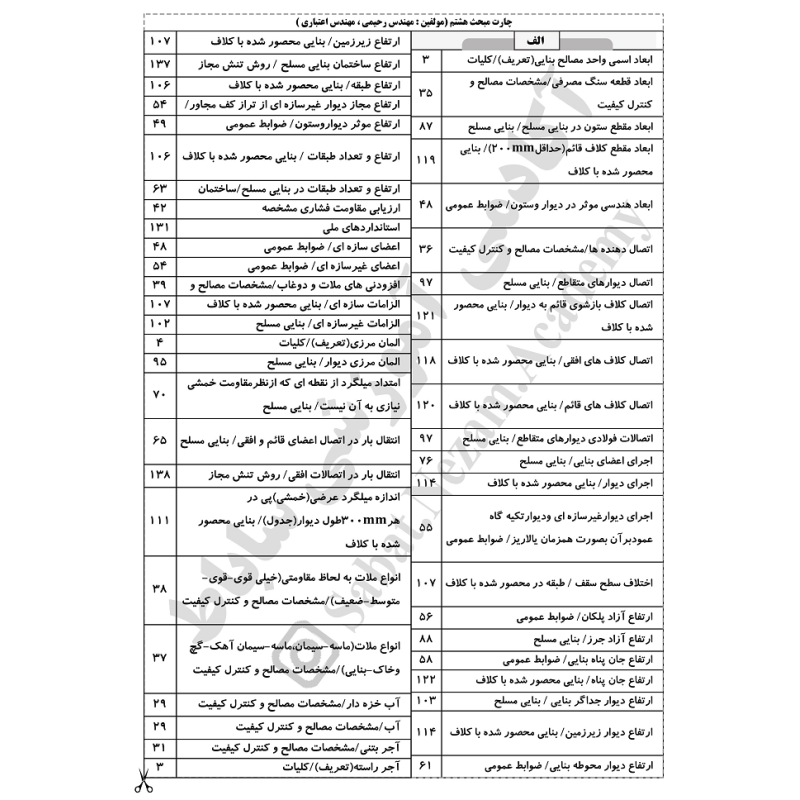 چارت مبحث هشتم (مولفین : مهندس رحیمی ، مهندس اعتباری )
الف
ابعاد اسمی واحد مصالح بنایی(تعریف)/کلیات ۳
ابعاد قطعه سنگ مصرفی/مشخصات مصالح و
کنترل کیفیت ۳۵
ابعاد مقطع ستون در بنایی مسلح/ بنایی مسلح ۸۷
ابعاد مقطع کلاف قائم(حداقل۲۰۰mm)/ بنایی
محصور شده با کلاف ۱۱۹
ابعاد هندسی موثر در دیوار وستون/ ضوابط عمومی ۴۸
اتصال دهنده ها/مشخصات مصالح و کنترل کیفیت ۳۶
اتصال دیوارهای متقاطع/ بنایی مسلح ۹۷
اتصال کلاف بازشوی قائم به دیوار/ بنایی محصور
شده با کلاف ۱۲۱
اتصال کلاف های افقی/ بنایی محصور شده با کلاف ۱۱۸
اتصال کلاف های قائم/ بنایی محصور شده با کلاف ۱۲۰
اتصالات فولادی دیوارهای متقاطع/ بنایی مسلح ۹۷
اجرای اعضای بنایی/ بنایی مسلح ۷۶
اجرای دیوار/ بنایی محصور شده با کلاف ۱۱۴
اجرای دیوارغیرسازه ای ودیوارتکیه گاه
عمودبرآن بصورت همزمان یالاریز/ ضوابط عمومی ۵۵
اختلاف سطح سقف / طبقه در محصور شده با کلاف ۱۰۷
ارتفاع آزاد پلکان/ ضوابط عمومی ۵۶
ارتفاع آزاد جرز/ بنایی مسلح ۸۸
ارتفاع جان پناه بنایی/ ضوابط عمومی ۵۸
ارتفاع جان پناه/ بنایی محصور شده با کلاف ۱۲۲
ارتفاع دیوار جداگر بنایی / بنایی مسلح ۱۰۳
ارتفاع دیوار زیرزمین/ بنایی محصور شده با کلاف ۱۱۴
ارتفاع دیوار محوطه بنایی/ ضوابط عمومی ۶۱
ارتفاع زیرزمین/ بنایی محصور شده با کلاف ۱۰۷
ارتفاع ساختمان بنایی مسلح / روش تنش مجاز ۱۳۷
ارتفاع طبقه/ بنایی محصور شده با کلاف ۱۰۶
ارتفاع مجاز دیوار غیرسازه ای از تراز کف مجاور/ ۵۴
ارتفاع موثر دیواروستون/ ضوابط عمومی ۴۹
ارتفاع و تعداد طبقات / بنایی محصور شده با کلاف ۱۰۶
ارتفاع و تعداد طبقات در بنایی مسلح/ساختمان ۶۳
ارزیابی مقاومت فشاری مشخصه ۴۲
استانداردهای ملی ۱۳۱
اعضای سازه ای/ ضوابط عمومی ۴۸
اعضای غیرسازه ای/ ضوابط عمومی ۵۴
افزودنی های ملات و دوغاب/مشخصات مصالح و ۳۹
الزامات سازه ای/ بنایی محصور شده با کلاف ۱۰۷
الزامات غیرسازه ای/ بنایی مسلح ۱۰۲
المان مرزی(تعریف)/کلیات ۴
المان مرزی دیوار/ بنایی مسلح ۹۵
امتداد میلگرد از نقطه ای که ازنظرمقاومت خمشی
نیازی به آن نیست/ بنایی مسلح ۷۰
انتقال بار در اتصال اعضای قائم و افقی/ بنایی مسلح ۶۵
انتقال بار در اتصالات افقی/ روش تنش مجاز ۱۳۸
اندازه میلگرد عرضی(خمشی)پی در
هر۳۰۰mmطول دیوار(جدول)/ بنایی محصور
شده با کلاف ۱۱۱
انواع ملات به لحاظ مقاومتی(خیلی قوی-قوی-
متوسط-ضعیف)/مشخصات مصالح و کنترل کیفیت ۳۸
انواع ملات(ماسه-سیمان،ماسه-سیمان آهک-گچ
وخاک-بنایی)/مشخصات مصالح و کنترل کیفیت ۳۷
آب خزه دار/مشخصات مصالح و کنترل کیفیت ۲۹
آب/مشخصات مصالح و کنترل کیفیت ۲۹
آجر بتنی/مشخصات مصالح و کنترل کیفیت ۳۱
آجر راسته(تعریف)/کلیات ۳
آکادمی آموزشی ساباط
Sabat.Nezam.Academy